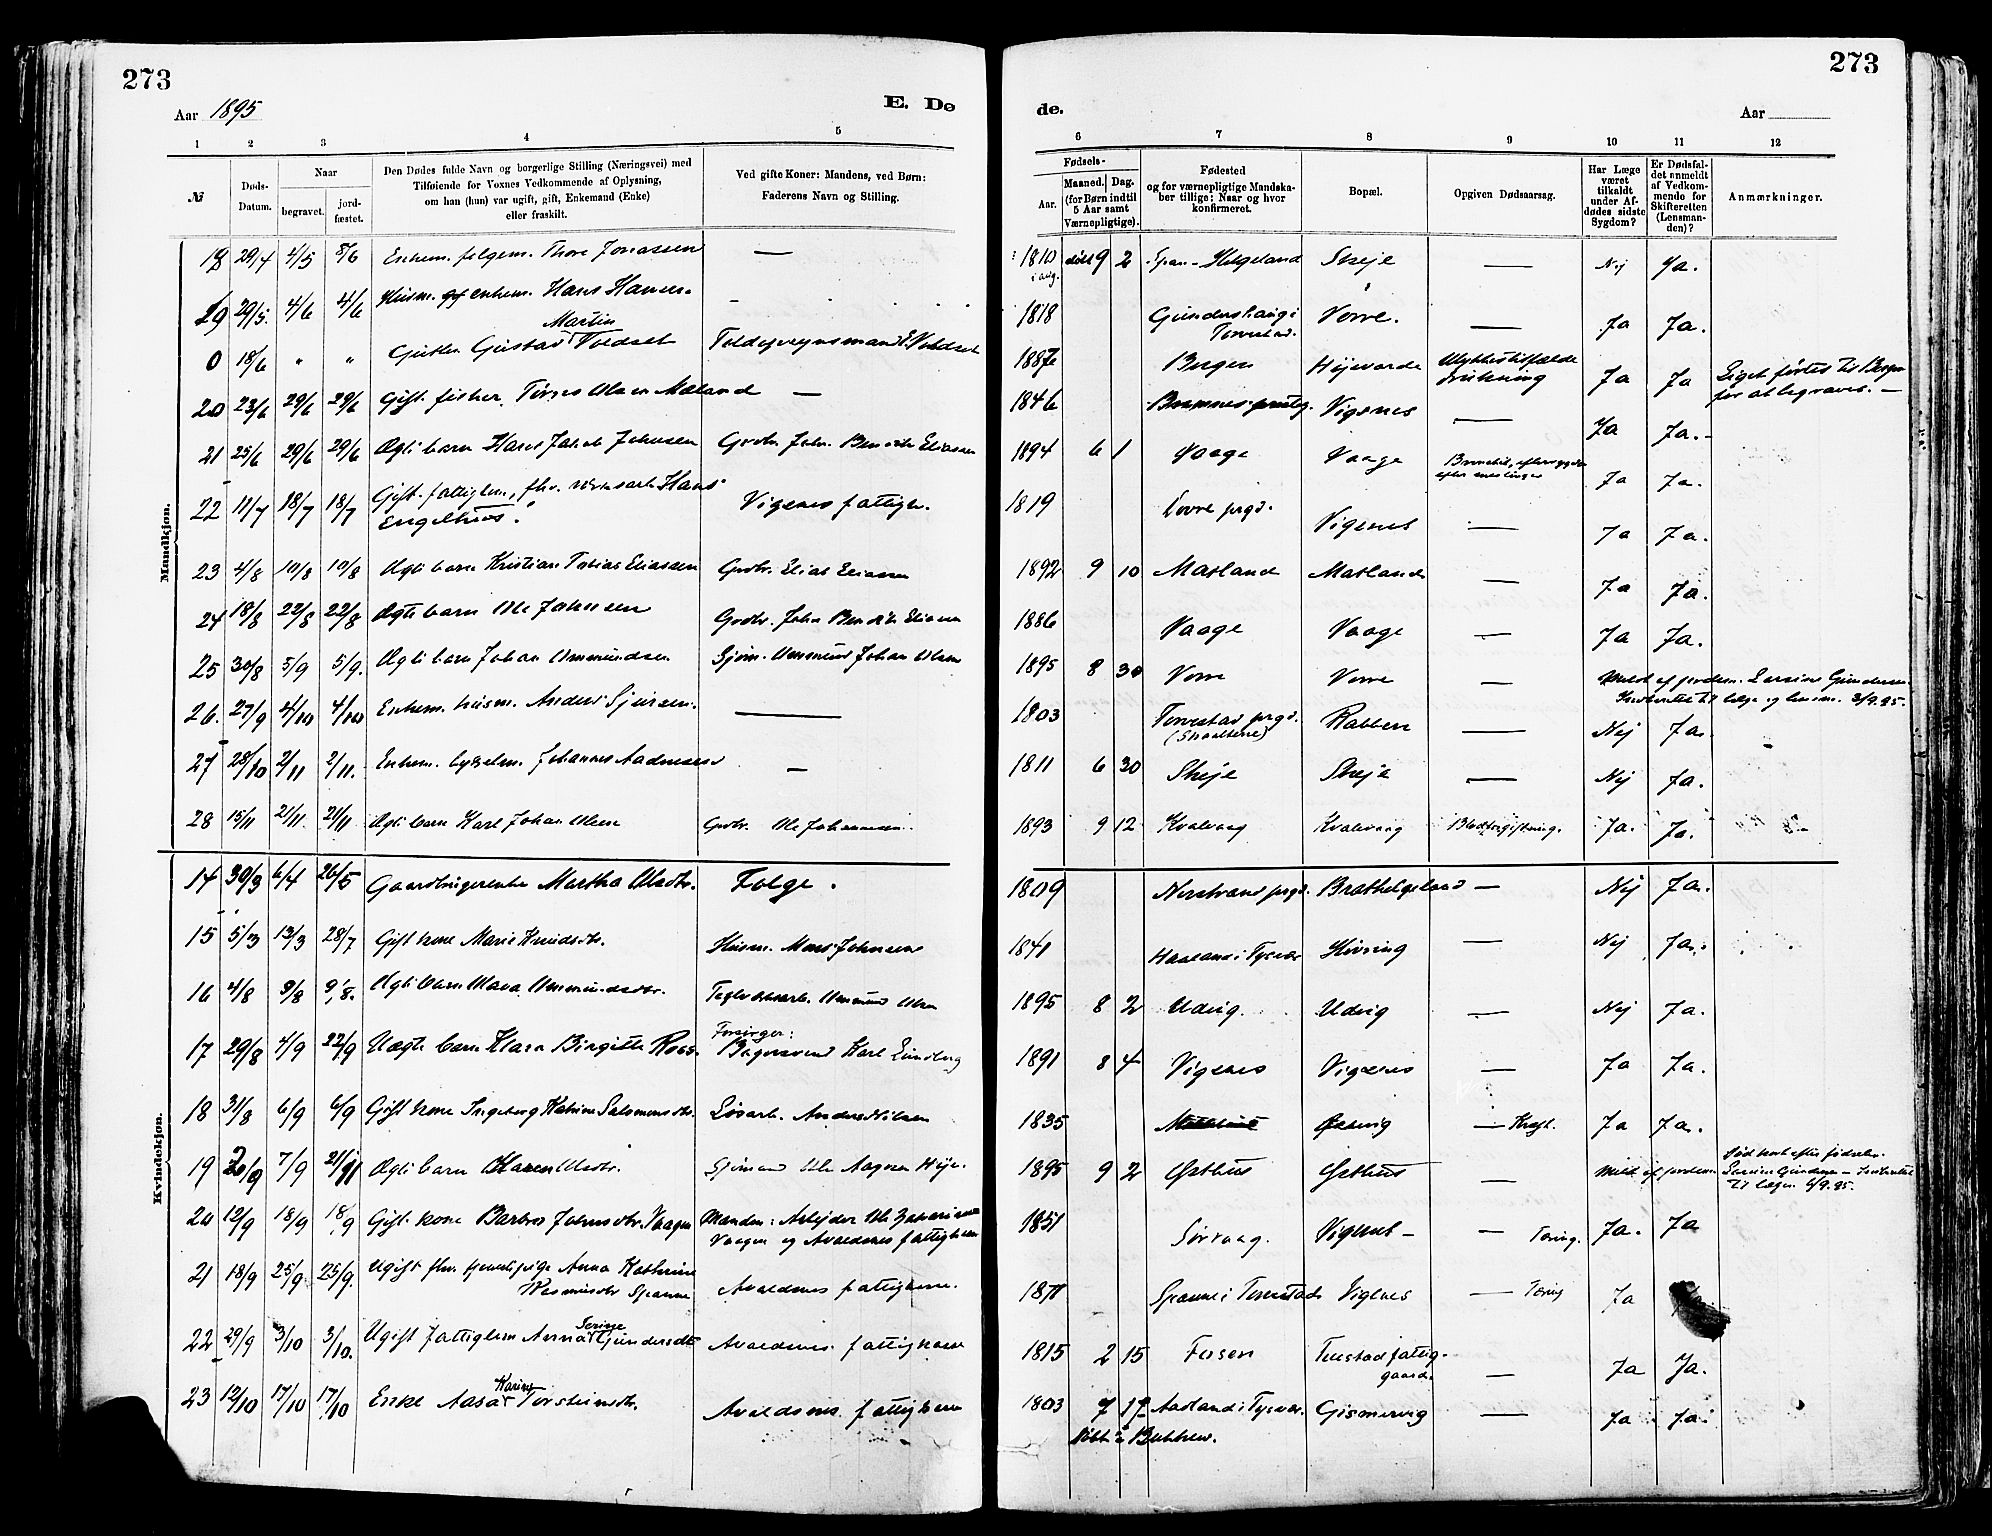 273
273
Aar 1895
E. Dø
de.
Aar
1 2 3 4 5
6 7 8 9 10 11 12
№
Døds-Datum.
Naar
begravet.
jord-fæstet.
Den Dødes fulde Navn og borgerlige Stilling (Næringsvei) med
Tilføiende for Voxnes Vedkommende af Oplysning,
om han (hun) var ugift, gift, Enkemand (Enke)
eller fraskilt.
Ved gifte Koner: Mandens, ved Børn:
Faderens Navn og Stilling.
Fødsels-
Aar.
Maaned. Dag.
(for Børn indtil
5 Aar samt
Værnepligtige).
Fødested
og for værnepligtige Mandska-
ber tillige: Naar og hvor
konfirmeret.
Bopæl.
Opgiven Dødsaarsag.
Har Læge
været
tilkaldt
under Af-
dødes sidste
Sygdom?
Er Dødsfal-
det anmeldt
af Vedkom-
mende for
Skifteretten
(Lensman-
den)?
Anmærkninger.
Mandkjøn.
18 29/4 4/5 8/6 Enkem. folgem. Thore Jonassen — 1810 9 2 Helgeland Skeje — Nej Ja.
19 29/5. 4/6 4/6 Husm. enkem. Hans Hansen. 1818 Gunderskaug i Torvestad. Vorre. — Ja Ja.
0 18/6 " " Gutten Gustav Martin Voldset 1887 Bergen Højevarde Ulykkestilfælde drukning Ja Ja Liget førtes til Bergen for at begraves. —
20 23/6 29/6 29/6 Gift fisker Tørres Olsen Mæland — 1846 Vigsnes — Ja Ja.
21 25/6 29/6 29/6 Ægte barn Hans Jakob Johnsen Grdbr. John Bendik Eliassen 1894 6 1 Vaage Vaage efter meslinger Ja Ja.
22 11/7 18/7 18/7 Gift fattiglem, fhv. Hans Engelhus. Vigsnes fattigk. 1819 prgd. Vigsnes — Ja Ja.
23 4/8 10/8 10/8 Ægte barn Kristian Tobias Eliassen Grdbr. Elias Eliassen 1892 9 10 Matland Matland — Ja Ja.
24 18/8 22/8 22/8 Ægte barn Ole Johnsen Grdbr. John Bendik Eliassen 1886 Vaage Vaage — Ja Ja.
25 30/8 5/9 5/9. Ægte barn Johan Ommundsen Sjøm. Ommund Johan Olsen 1895 8 30 Vorre Vorre — Meld af jordem. Larsine Gundersen til læge og 3/9.95.
26. 27/9 4/10 4/10 Enkem. husm. Anders Sjursen. — 1803 Torvestad prgd. Rabben — Nej Ja.
27 28/10 2/11 2/11. Enkem. Johannes Aadnesen — 1811 6 30 Skeje Skeje — Nej Ja.
28 15/11 21/11. 21/11 Ægte barn Karl Johan Olsen Grdbr. Ole Johannesen. 1893 9 12 Kvalevaag Kvalevaag Blodforgiftning. Ja. Ja.
Kvindekjøn.
14 30/3 6/4 26/5 Gaardbrugerenke Martha Olsdtr. Folge. 1809 Nerstrand prgd. Brathelgeland — Nej Ja.
15 5/3 13/3 28/7 Gift kone Marie Knudsdtr. Husm. Mons Johnsen 1841 i Tysvær — Nej Ja.
16 4/8 9/8 9/8. Ægte barn Ommundsdtr. Ommund Olsen 1895 8 2 Udvig. Udvig — Nej Ja.
17 29/8 4/9 22/9 Uægte barn Klara Birgitte Ross. Forsørger: Bagersvend Karl Lundberg 1891 8 4 Vigsnes Vigsnes — Ja Ja.
18 31/8 6/9 6/9 Gift kone Ingeborg Katrine Salomonsdtr. Løsarb. Anders Nilsen 1835 — Kræft. Ja Ja.
19 7/9 21/11 Ægte barn Karen Olsdtr. Sjømand Ole Aagesen Høje. 1895 9 2 Østhus Østhus — Meld af jordem. død kort efter fødselen. Larsine Gundersen til lægen 6/9.95.
20 12/9 18/9 18/9 Gift kone Barbro Johnsdtr. Vaagen Manden: Arbejder Ole Zakariasen Vaagen og Avaldsnes fattigkasse 1851 Sørvaag. Vigsnes — Tæring. Ja. Ja
21 18/9 25/9. 25/9. Ugift fhv. tjenestepige Anna Kathrine Rasmusdtr Spanne Avaldsnes fattigkasse. 1871 Spanne i Torvestad Vigsnes — Tæring Ja
22 29/9 3/10 3/10. Ugift fattiglem Anna Serine Gundersdtr Avaldsnes fattigkasse 1815 2 15 Fosen Tuestad fattiggaard. — Ja Ja.
23 12/10 17/10 17/10 Enke Aasa Karine Torsteinsdtr. Avaldsnes fattigkasse 1803 7 Aadland i Tysvær. Gismervig — Ja Ja.
Døbt i Bukken.